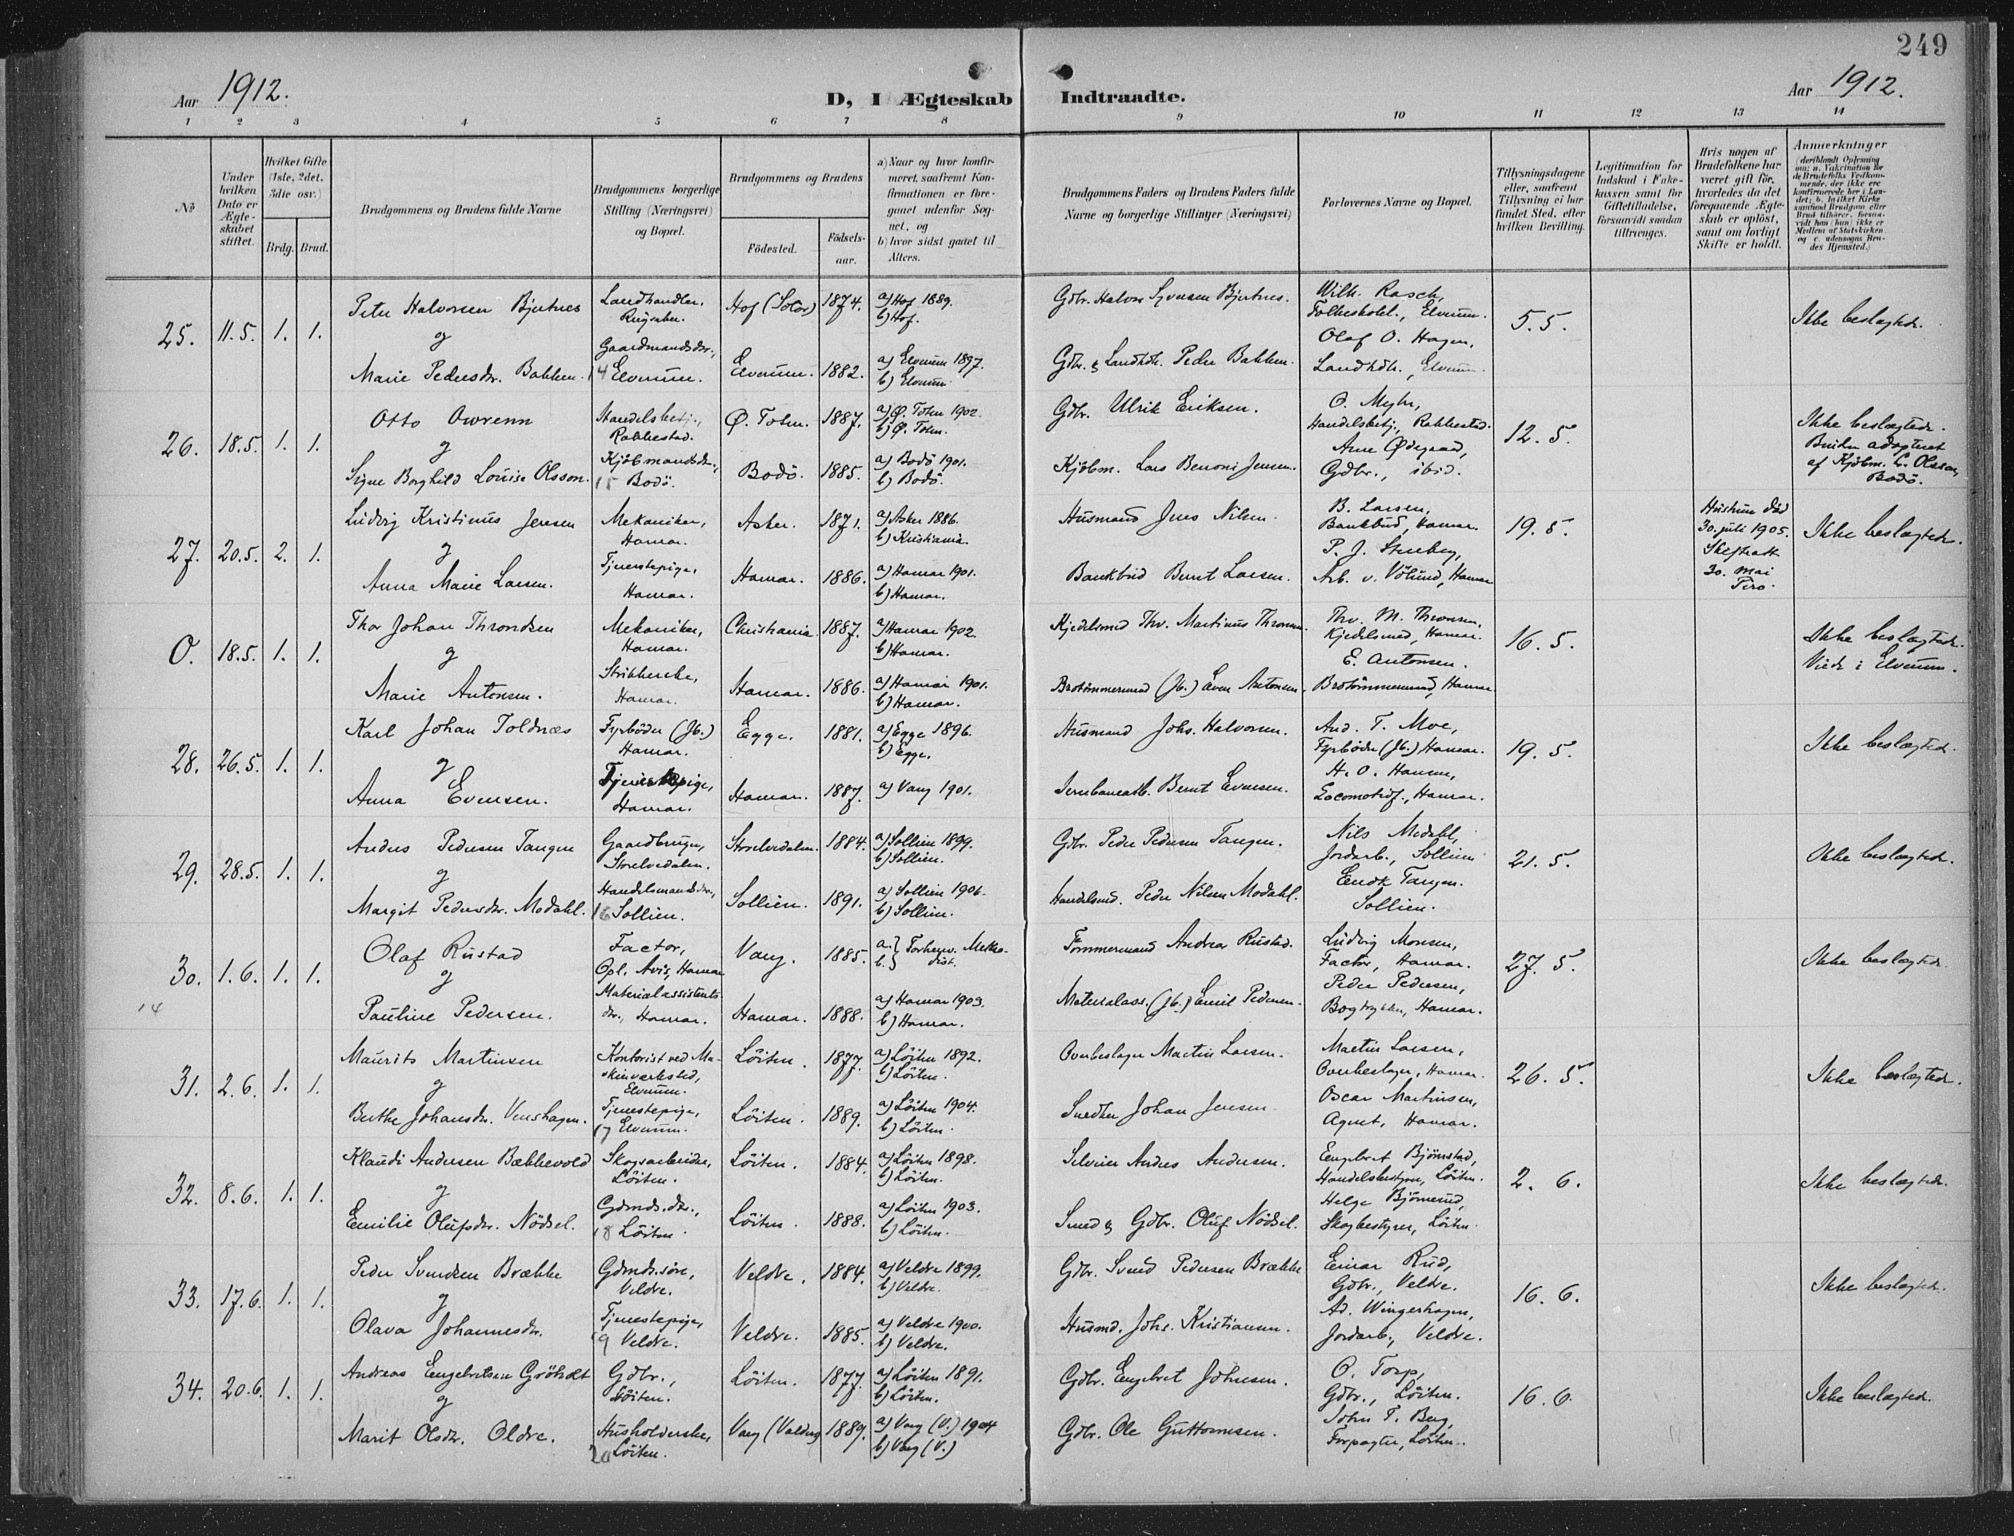 249
Aar 1912.
D, I Ægteskab Indtraadte.
Aar 1912.
1 2 3 4 5 6 7 8 9 10 11 12 13 14
No
Under hvilken Dato er Ægteskabet stiftet.
Hvilket Gifte (1ste, 2det, 3die osv.)
Brdg. Brud.
Brudgommens og Brudens fulde Navne
Brudgommens borgerlige Stilling (Næringsvei) og Bopæl.
Brudgommens og Brudens
Fødested. Fødselsaar.
a) Naar og hvor konfirmeret, saafremt Konfirmationen er foregaaet udenfor Sognet, og
b) hvor sidst gaaet til Alters.
Brudgommens Faders og Brudens Faders fulde Navne og borgerlige Stillinger (Næringsvei)
Forlovernes Navne og Bopæl.
Tillysningsdagene eller, saafremt Tillysning ei har fundet Sted, efter hvilken Bevilling.
Legitimation for Indskud i Enkekassen samt for Giftetilladelse, forsaavidt saadan tiltrænges.
Hvis nogen af Brudefolkene har været gift før, hvorledes da det foregaaende Ægteskab er opløst, samt om lovligt Skifte er holdt.
Anmerkninger
25. 11.5. 1. 1.
Peter Halvorsen Bjertnes
og
Marie Pedersdr. Bakken.
Landhandler, Ringsaker.
Gaardmandsdtr., Elverum.
Hof (Solør) 1874. a) Hof 1889. b) Hof.
Elverum. 1882. a) Elverum 1897. b) Elverum.
Gdbr. Halvor Syversen Bjertnes.
Gdbr. & Landhdl. Peder Bakken.
Wilh. Rasch, Folkeskolel., Elverum.
Olaf O. Hagen, Landhdl., Elverum.
5.5.
Ikke beslægtede.
26. 18.5. 1. 1.
Otto Owrenn
og
Signe Borghild Louise Olsson.
Handelsbetj., Rakkestad.
Kjøbmandsdtr., Bodø.
Ø. Toten. 1887. a) Ø. Toten 1902. b) Ø. Toten.
Bodø. 1885. a) Bodø 1901. b) Bodø.
Gdbr. Ulrik Eriksen.
Kjøbm. Lars Benoni Jensen.
Handelsbetj., Rakkestad.
Arne Ødegaard, Gdbr., ibid.
12.5.
Ikke beslægtede.
Bruden adopteret af Kjøbm. L. Olsson, Bodø.
27. 20.5. 2. 1.
Ludvig Kristinus Jensen
og
Anna Marie Larsen.
Mekaniker, Hamar.
Tjenestepige, Hamar.
Asker. 1871. a) Asker 1886. b) Kristiania.
Hamar. 1886. a) Hamar 1901. b) Hamar.
Husmand Jens Nilsen.
Bankbud Bernt Larsen.
B. Larsen, Bankbud, Hamar.
P. J. Stenberg, Arb. v. Vølund, Hamar
19.5.
Hustrun død 30. juli 1905.
Skifteatt. 30. mai
Ikke beslægtede.
0. 18.5. 1. 1.
Thor Johan Throndsen
og
Marie Antonsen.
Mekaniker, Hamar.
Hamar.
Christiania. 1887. a) Hamar 1902. b) Hamar.
Hamar. 1886. a) Hamar 1901. b) Hamar.
Kjedelsmed Thv. Martinus Thronsen.
Brotømmermand (Jb.) Even Antonsen.
Thv. M. Thronsen, Kjedelsmed, Hamar.
E. Antonsen. Brotømmermand, Hamar
16.5.
Ikke beslægtede.
Viede i Elverum.
28. 26.5. 1. 1.
Karl Johan Toldnæs
og
Anna Evensen.
Fyrbøder (Jb.) Hamar.
Tjenestepige, Hamar.
Egge. 1881. a) Egge 1896. b) Egge.
Hamar. 1887. a) Vang 1901.
Husmand Johs. Halvorsen.
Jernbanearb. Bernt Evensen.
And. T. Moe, Fyrbøder (Jb.) Hamar.
H. O. Hansen, Locomotivf., Hamar.
19.5.
Ikke beslægtede.
29. 28.5. 1. 1.
Anders Pedersen Tangen
og
Margit Pedersdr. Modahl.
Gaardbruger, Storelvedalen.
Handelsmandsdtr., 16 Sollien.
Storelvedalen. 1884. a) Sollien 1899. b) Sollien.
Sollien. 1891. a) Sollien 1906. b) Sollien.
Gdbr. Peder Pedersen Tangen.
Handelsmd. Peder Nilsen Modahl.
Nils Modahl, Jordarb., Sollien
Endr. Tangen. Sollien.
21.5.
Ikke beslægtede.
30. 1.6. 1. 1.
14
Olaf Rustad
og
Pauline Pedersen.
Factor, Opl. Avis, Hamar
Materialassistentsdtr., Hamar.
Vang. 1885. a. b.
Hamar. 1888. a) Hamar 1903. b) Hamar.
Tømmermand Andreas Rustad.
Materialass. (Jb.) Emil Pedersen.
Ludvig Monsen, Factor, Hamar.
Peder Pedersen, Bogtrykker, Hamar.
27.5.
Ikke beslægtede.
31. 2.6. 1. 1.
Maurits Martinsen
og
Berthe Johansdr. Venshagen.
Kontorist ved Maskinværksted, Elverum.
Tjenestepige, 17 Elverum.
Løiten. 1877. a) Løiten 1892. b) Løiten.
Løiten. 1889. a) Løiten 1904. b) Løiten.
Ovnbeslager Martin Larsen.
Snedker Johan Jensen.
Martin Larsen, Ovnbeslager, Hamar.
Oscar Martinsen, Agent, Hamar.
26.5.
Ikke beslægtede.
32. 8.6. 1. 1.
Klaudi Andersen Bækkevold
og
Emilie Olufsdr. Nødsel.
Skogsarbeider, Løiten.
Gdmds.dtr., 18 Løiten.
Løiten. 1884. a) Løiten 1898. b) Løiten.
Løiten. 1888. a) Løiten 1903. b) Løiten.
Selveier Anders Andersen.
Smed & Gdbr. Oluf Nødsel.
Engebret Bjørnstad, Handelsbestyrer, Løiten.
Helge Bjørnerud, Skogbestyrer, Løiten.
2.6.
Ikke beslægtede.
33. 17.6. 1. 1.
Peder Svendsen Brække
og
Olava Johannesdr.
Gdmds.søn, Veldre.
Tjenestepige, 19 Veldre.
Veldre. 1884. a) Veldre 1899. b) Veldre.
Veldre. 1885. a) Veldre 1900. b) Veldre.
Gdbr. Svend Pedersen Brække
Husmd. Johs. Kristiansen.
Einar Rud, Gdbr., Veldre.
Ad. Wingerhagen, Jordarb., Veldre.
16.6.
Ikke beslægtede.
34. 20.6. 1. 1.
Andreas Engebretsen Grøholt
og
Marit Olsdr. Oldre.
Gdbr., Løiten.
Husholderske, 20 Løiten.
Løiten. 1877. a) Løiten 1891. b) Løiten.
Vang (Valdres) 1889. a) Vang (V.) 1904 b) Vang (V.)
Gdbr. Engebret Johnsen.
Gdbr. Ole Guttormsen.
O. Torp, Gdbr., Løiten.
John T. Berg, Forpagter, Løiten.
16.6.
Ikke beslægtede.